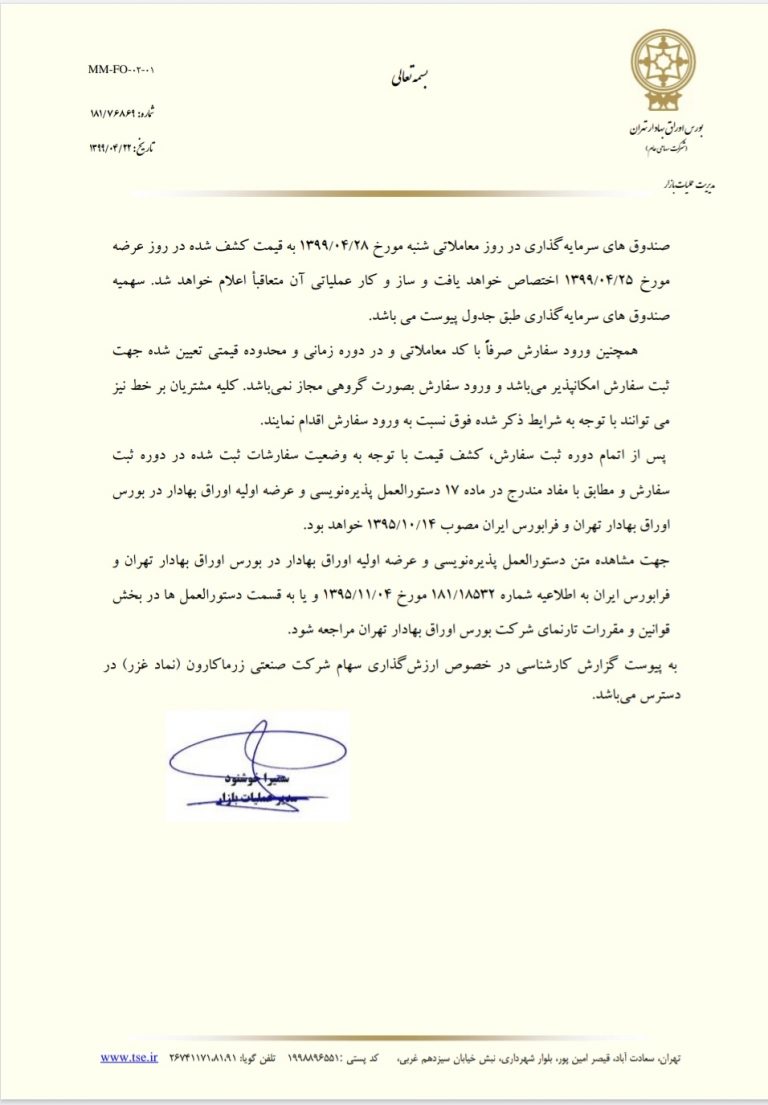 MM-FO-۰۲-۰۱
بسمه تعالی
شماره: ۱۸۱/۷۶۸۶۹
تاریخ: ۱۳۹۹/۰۴/۲۲
بورس اوراق بهادار تهران
(شرکت سهامی عام)
مدیریت عملیات بازار
صندوق های سرمایه‌گذاری در روز معاملاتی شنبه مورخ ۱۳۹۹/۰۴/۲۸ به قیمت کشف شده در روز عرضه
مورخ ۱۳۹۹/۰۴/۲۵ اختصاص خواهد یافت و ساز و کار عملیاتی آن متعاقباً اعلام خواهد شد. سهمیه
صندوق های سرمایه‌گذاری طبق جدول پیوست می باشد.
همچنین ورود سفارش صرفاً با کد معاملاتی و در دوره زمانی و محدوده قیمتی تعیین شده جهت
ثبت سفارش امکانپذیر می‌باشد و ورود سفارش بصورت گروهی مجاز نمی‌باشد. کلیه مشتریان بر خط نیز
می توانند با توجه به شرایط ذکر شده فوق نسبت به ورود سفارش اقدام نمایند.
پس از اتمام دوره ثبت سفارش، کشف قیمت با توجه به وضعیت سفارشات ثبت شده در دوره ثبت
سفارش و مطابق با مفاد مندرج در ماده ۱۷ دستورالعمل پذیره‌نویسی و عرضه اولیه اوراق بهادار در بورس
اوراق بهادار تهران و فرابورس ایران مصوب ۱۳۹۵/۱۰/۱۴ خواهد بود.
جهت مشاهده متن دستورالعمل پذیره‌نویسی و عرضه اولیه اوراق بهادار در بورس اوراق بهادار تهران و
فرابورس ایران به اطلاعیه شماره ۱۸۱/۱۸۵۳۲ مورخ ۱۳۹۵/۱۱/۰۴ و یا به قسمت دستورالعمل ها در بخش
قوانین و مقررات تارنمای شرکت بورس اوراق بهادار تهران مراجعه شود.
به پیوست گزارش کارشناسی در خصوص ارزش‌گذاری سهام شرکت صنعتی زرماکارون (نماد غزر) در
دسترس می‌باشد.
سمیرا خوشنود
مدیر عملیات بازار
تهران، سعادت آباد، قیصر امین پور، بلوار شهرداری، نبش خیابان سیزدهم غربی، کد پستی :۱۹۹۸۸۹۶۵۵۱ تلفن گویا: ۲۶۷۴۱۱۷۱،۸۱،۹۱ www.tse.ir